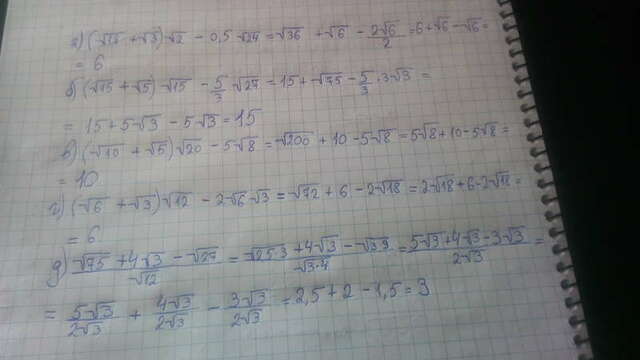 а) (√18 + √3)√2 - 0,5√24 = √36 + √6 - 2√6/2 = 6 + √6 - √6 =
= 6
б) (√15 + √5)√15 - 5/3 √27 = 15 + √75 - 5/3 · 3√3 =
= 15 + 5√3 - 5√3 = 15
в) (√10 + √5)√20 - 5√8 = √200 + 10 - 5√8 = 5√8 + 10 - 5√8 =
= 10
г) (√6 + √3)√12 - 2√6·√3 = √72 + 6 - 2√18 = 2√18 + 6 - 2√18 =
= 6
д) (√75 + 4√3 - √27)/√12 = (√25·3 + 4√3 - √3·9)/√3·4 = (5√3 + 4√3 - 3√3)/2√3 =
= 5√3/2√3 + 4√3/2√3 - 3√3/2√3 = 2,5 + 2 - 1,5 = 3